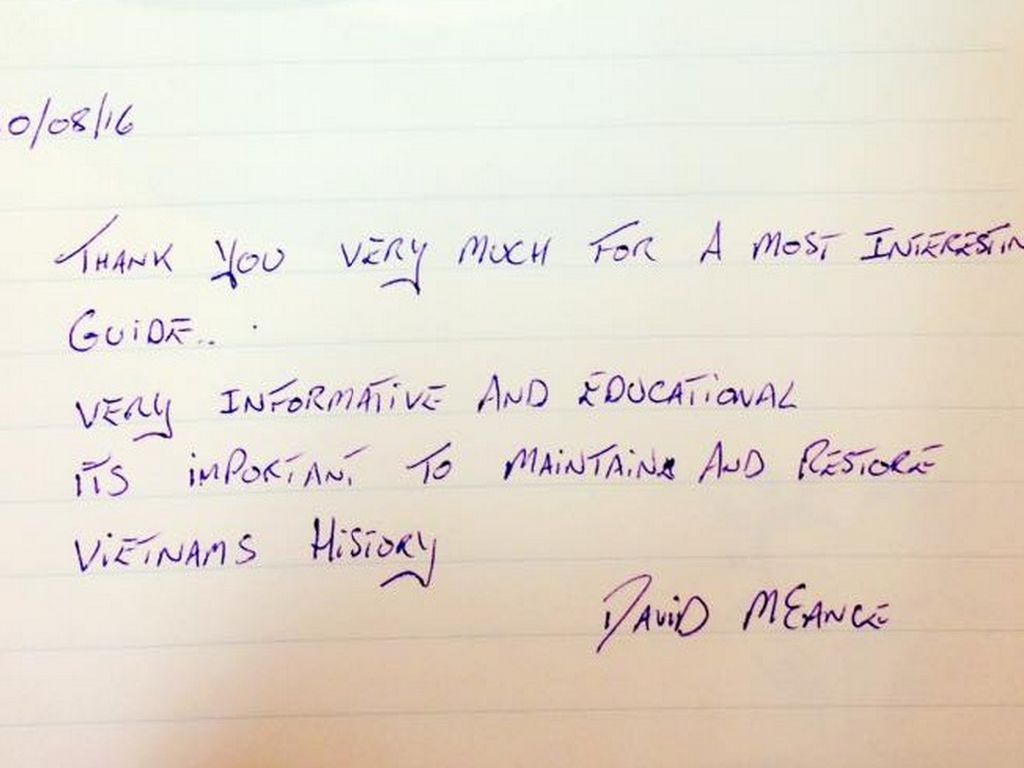 0/08/16
THANK YOU VERY MUCH FOR A MOST INTERESTIN
GUIDE..
VERY INFORMATIVE AND EDUCATIONAL
ITS IMPORTANT TO MAINTAIN AND RESTORE
VIETNAMS HISTORY
DAVID